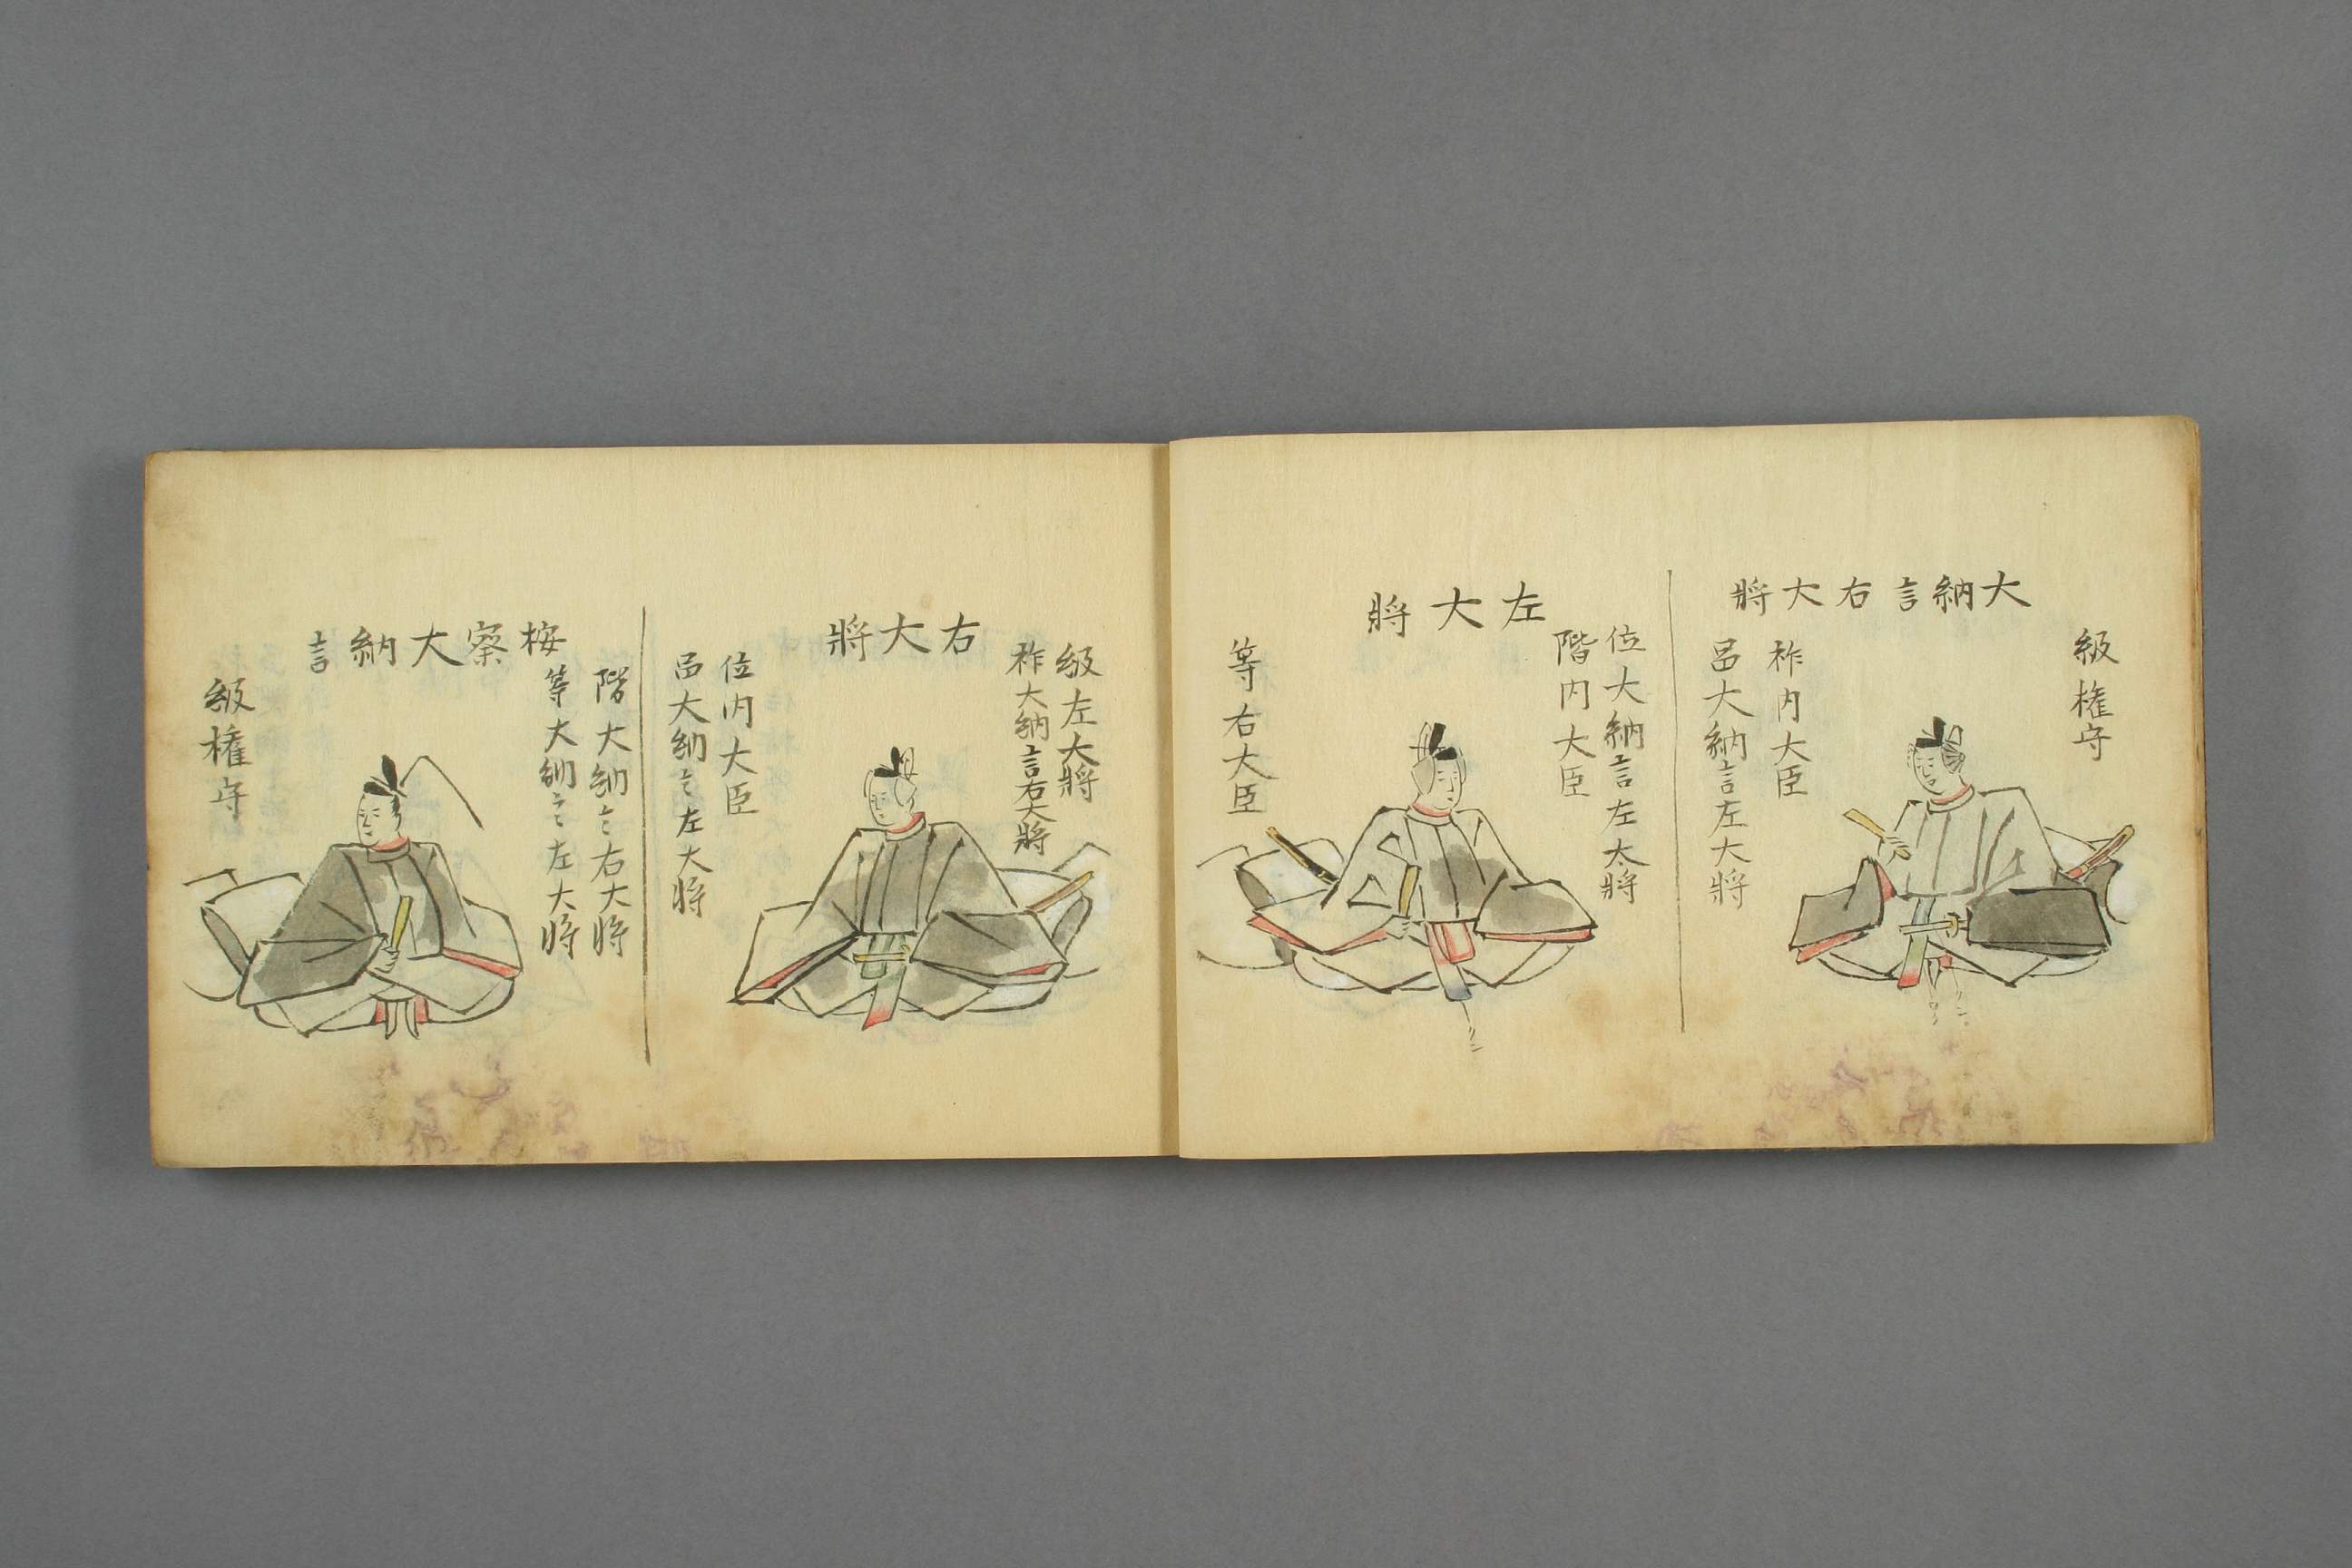 大納言右大將
級権守
祚内大臣
呂大納言左大將
左大將
位大納言左太將
階内大臣
等右大臣
右大將
級左大將
祚大納言右大將
位内大臣
呂大納言左大將
桉察大納言
階大納言右大將
等大納言左大將
級権守